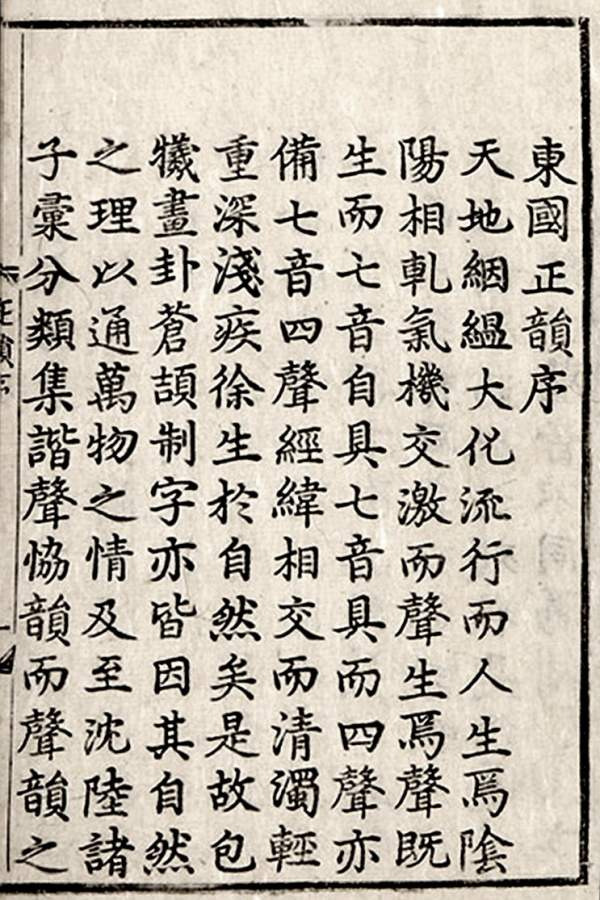 東國正韻序
天地絪縕大化流行而人生焉陰
陽相軋氣機交激而聲生焉聲既
生而七音自具七音具而四聲亦
備七音四聲經緯相交而清濁輕
重深淺疾徐生於自然矣是故包
犧畫卦蒼頡制字亦皆因其自然
之理以通萬物之情及至沈陸諸
子彙分類集諧聲恊韻而聲韻之